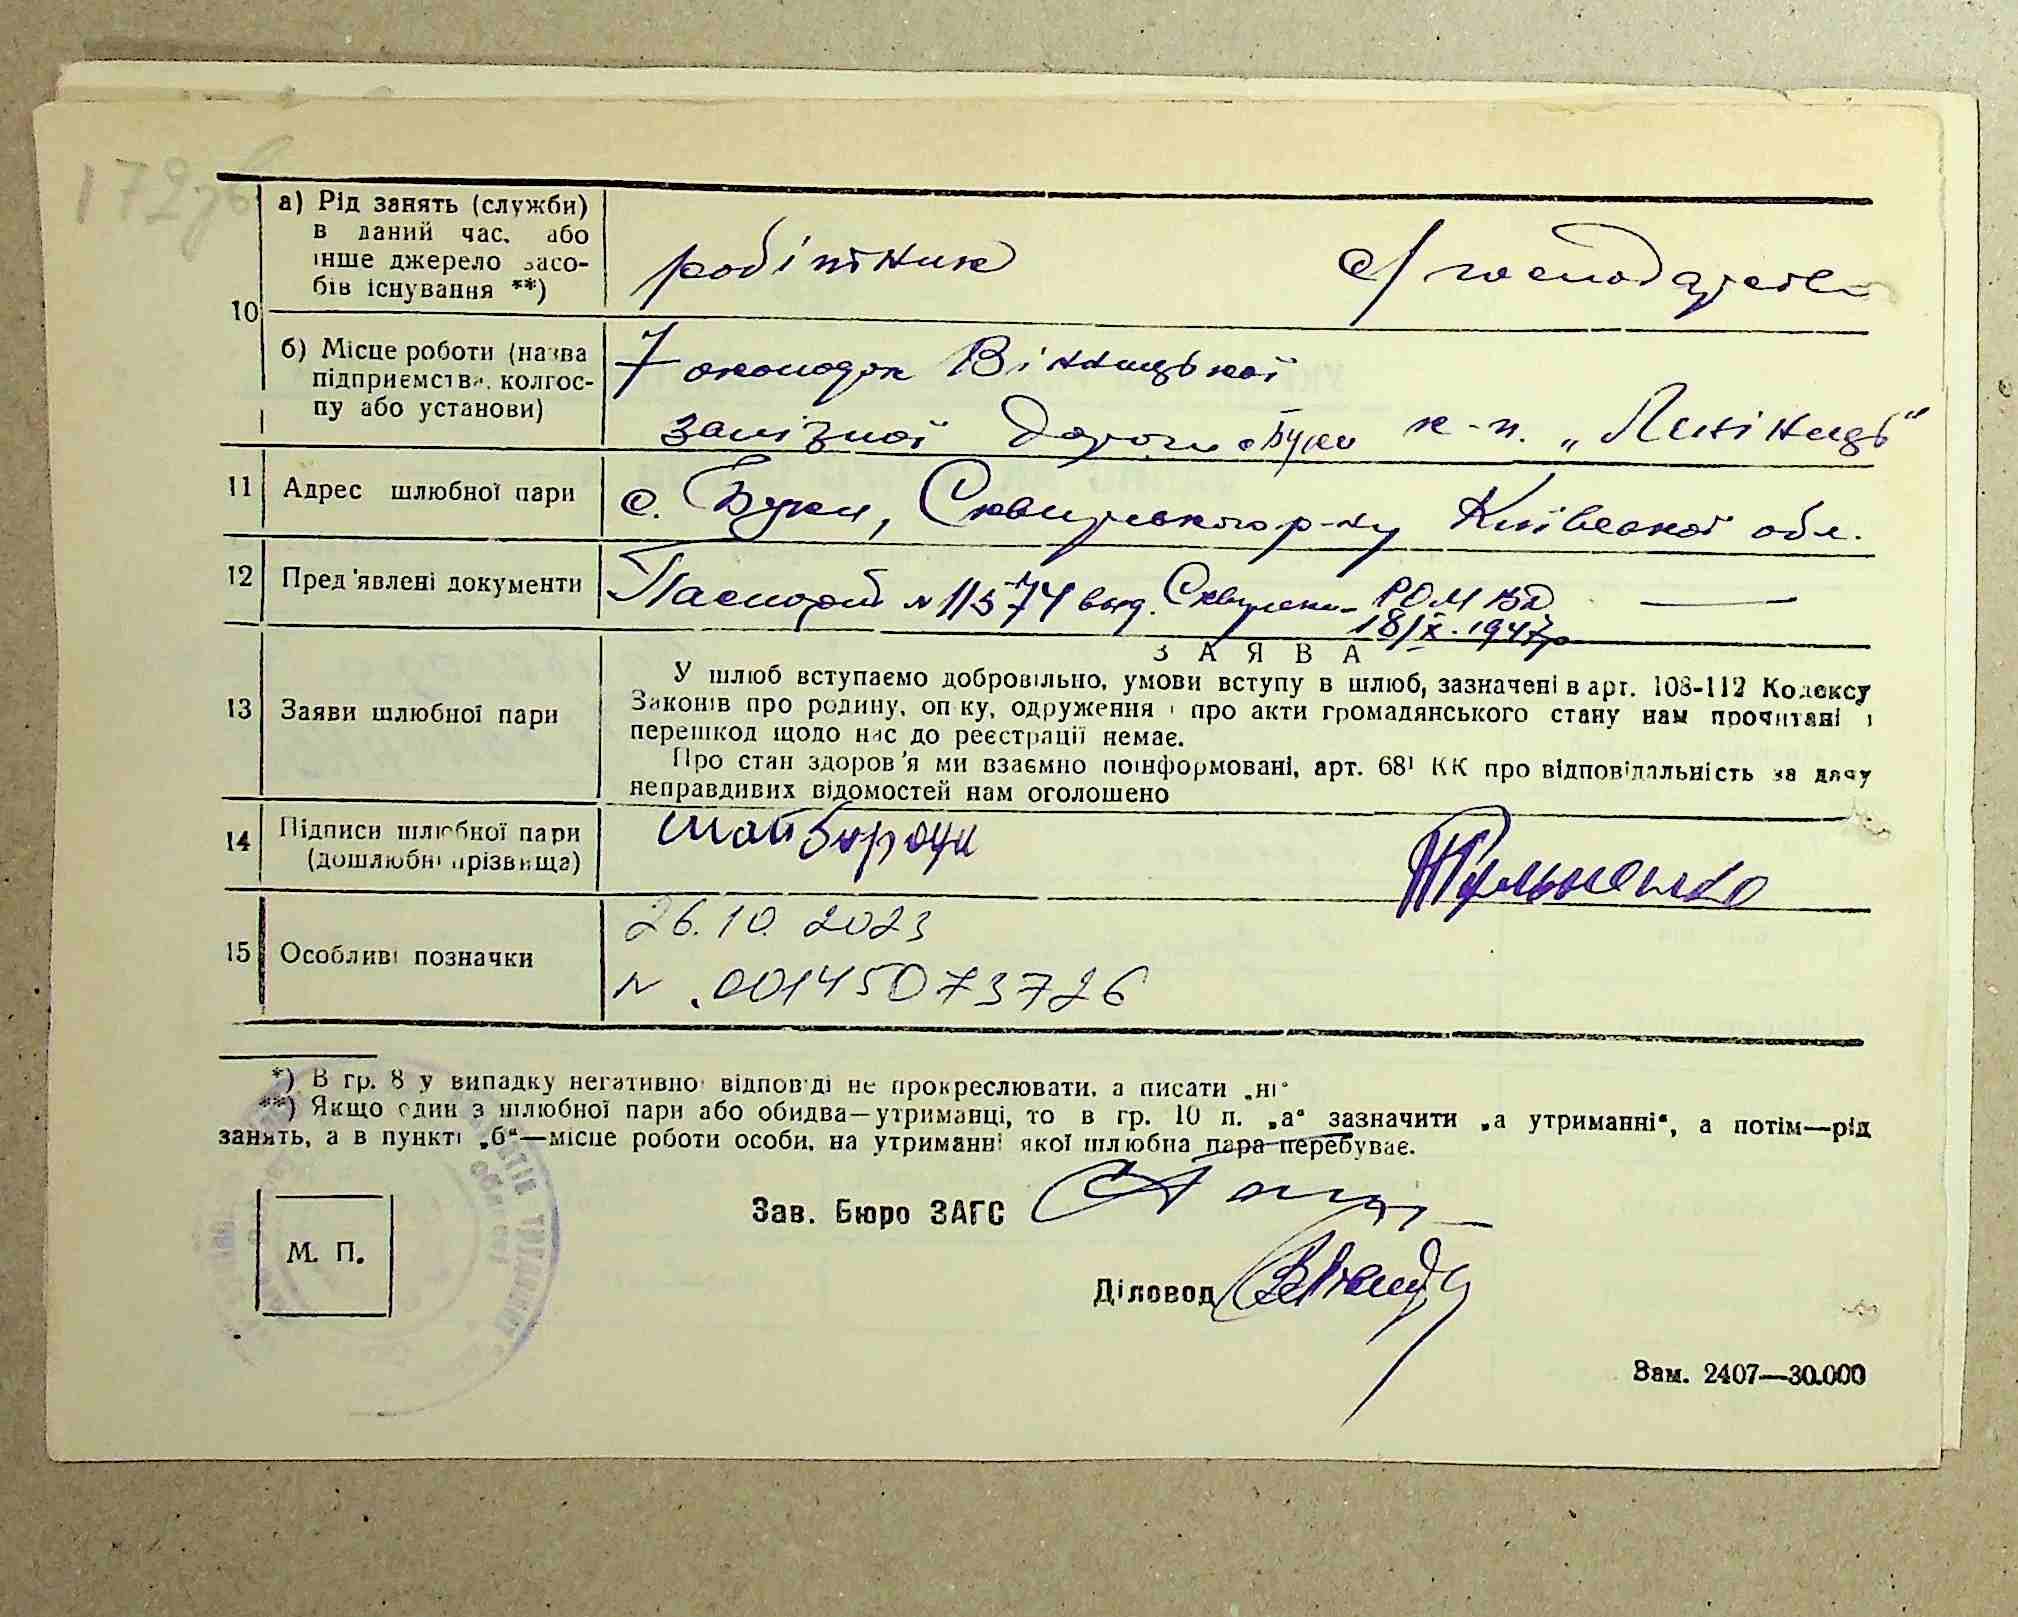 172зв
10
а) Рід занять (служби)
в даний час, або
інше джерело засо-
бів існування **)
робітник
с/господарство
б) Місце роботи (назва
підприємства, колгос-
пу або установи)
7 околодок Вінницької
залізної дороги с Буки к-п. „Ленінець“
11 Адрес шлюбної пари
с. Буки, Сквирського р-ну Київської обл.
12 Пред'явлені документи
Паспорт № 11574 вид. Сквирськ- РОМВД
18/X. 1947р
13 Заяви шлюбної пари
ЗАЯВА
У шлюб вступаємо добровільно, умови вступу в шлюб, зазначені в арт. 108-112 Кодексу
Законів про родину, опіку, одруження і про акти громадянського стану нам прочитані і
перешкод щодо нас до реєстрації немає.
Про стан здоров'я ми взаємно поінформовані, арт. 68¹ КК про відповідальність за дачу
неправдивих відомостей нам оголошено
14 Підписи шлюбної пари
(дошлюбні прізвища)
15 Особливі позначки
26.10.2023
N .00145073726
*) В гр. 8 у випадку негативної відповіді не прокреслювати, а писати „ні“
**) Якщо один з шлюбної пари або обидва—утриманці, то в гр. 10 п. „а“ зазначити „а утриманні“, а потім—рід
занять, а в пункті „б“—місце роботи особи, на утриманні якої шлюбна пара перебуває.
Зав. Бюро ЗАГС
М. П.
Діловод
Зам. 2407—30.000